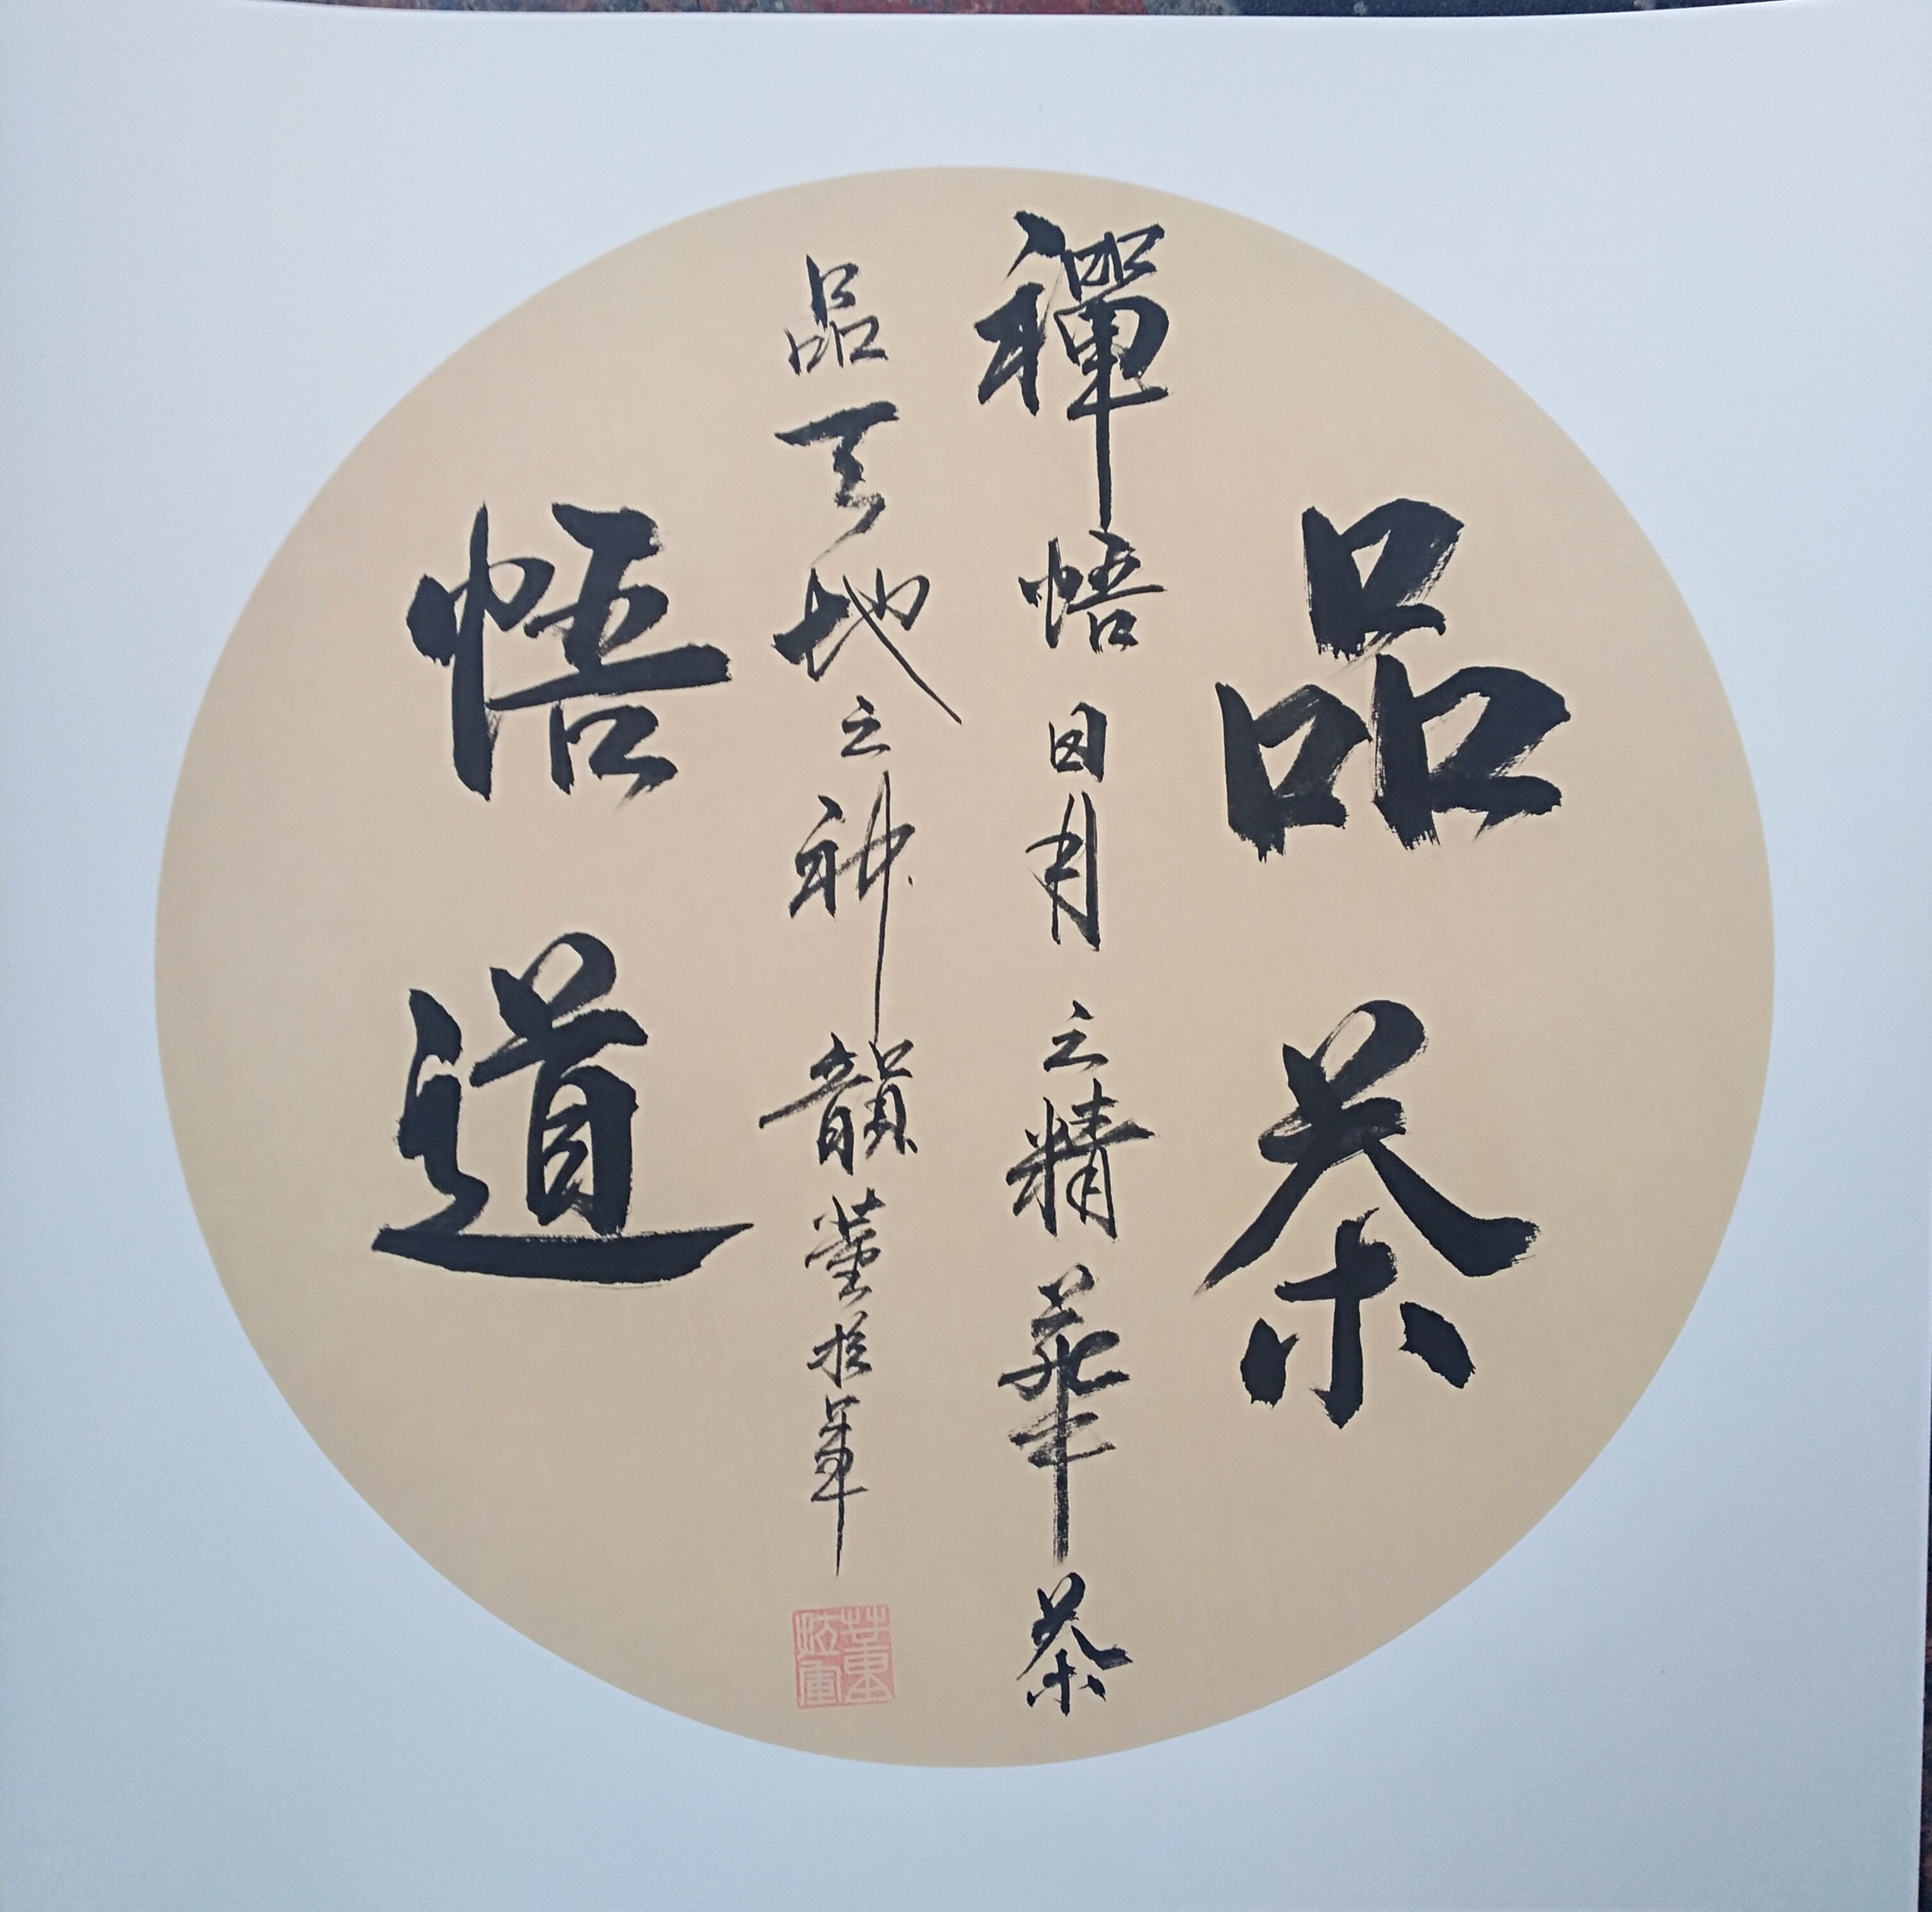 品茶
禪悟日月之精華茶
品天地之神韻董於軍
悟道
董
軍